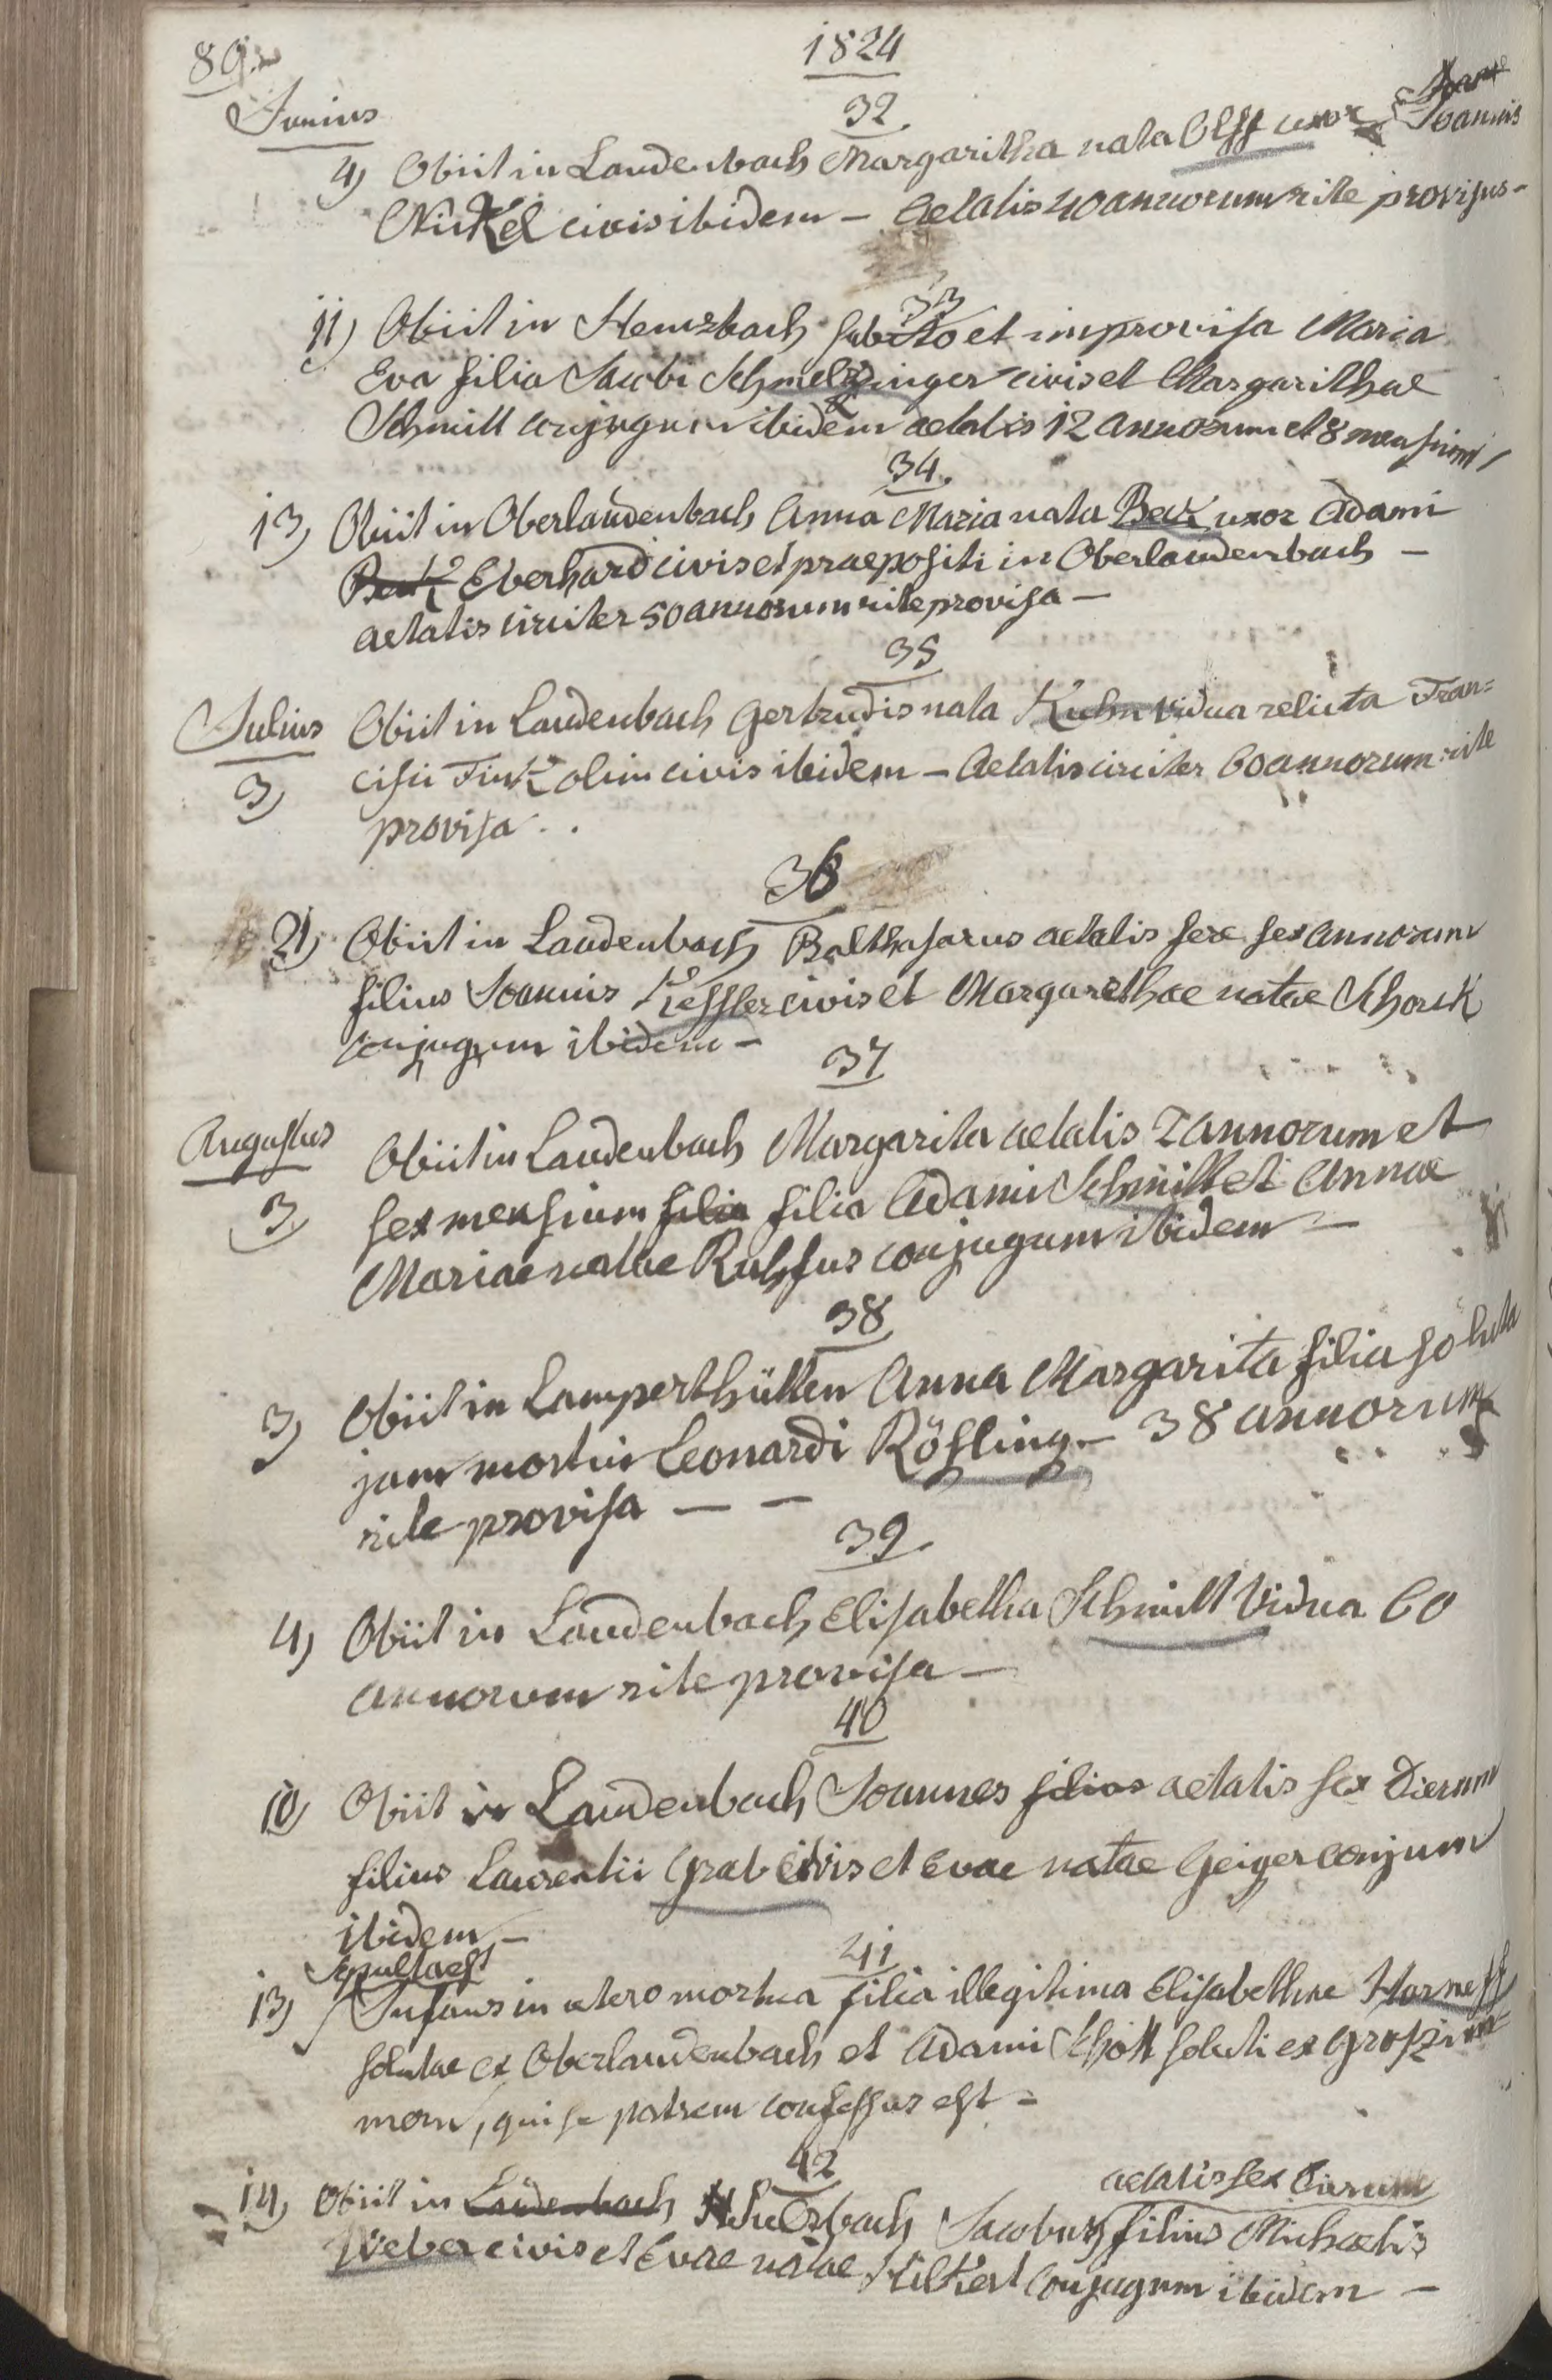 89.
1824
Junius
32
4) Obiit in Laudenbach Margaritha nata Olff uxor Joannis
Nickel civis ibidem – Aetatis 40 annorum rite provisus –
33
11) Obiit in Hemsbach subito et improvisa Maria
Eva filia Jacobi Schmelzinger civis et Margarithae
Schmitt conjugum ibidem aetatis 12 annorum et 8 mensium
34.
13) Obiit in Oberlaudenbach Anna Maria nata Beck uxor Adami
Eberhard civis et praepositi in Oberlaudenbach –
aetatis circiter 50 annorum rite provisa –
35
Julius Obiit in Laudenbach Gertrudis nata Kuhn vidua relicta Fran=
3) cisci Fink olim civis ibidem – Aetatis circiter 60 annorum rite
provisa . .
36
21) Obiit in Laudenbach Balthasarus aetatis fere sex annorum
filius Joannis Kessler civis et Margarethae natae Schork
conjugum ibidem –
37
Augustus Obiit in Laudenbach Margarita aetatis 2 annorum et
3) sex mensium filia filia Adami Schmitt et Annae
Mariae natae Ruhfus conjugum ibidem –
38
3) Obiit in Lamperthütten Anna Margarita filia soluta
jam mortui Leonardi Rößling – 38 annorum
rite provisa – –
39
4) Obiit in Laudenbach Elisabetha Schmitt vidua 60
annorum rite provisa –
40
10) Obiit in Laudenbach Joannes filius aetatis sex dierum
filius Laurentii Grab civis et Evae natae Geiger conjum
ibidem –
41
Sepulta est
13) Infans in utero mortua filia illegitima Elisabethae
solutae ex Oberlaudenbach et Adami Schott soluti ex
, qui se patrem confessus est –
42
aetatis sex dierum
14) Obiit in Laudenbach Jacobus filius Michaelis
Weber civis et Evae natae conjugum ibidem –